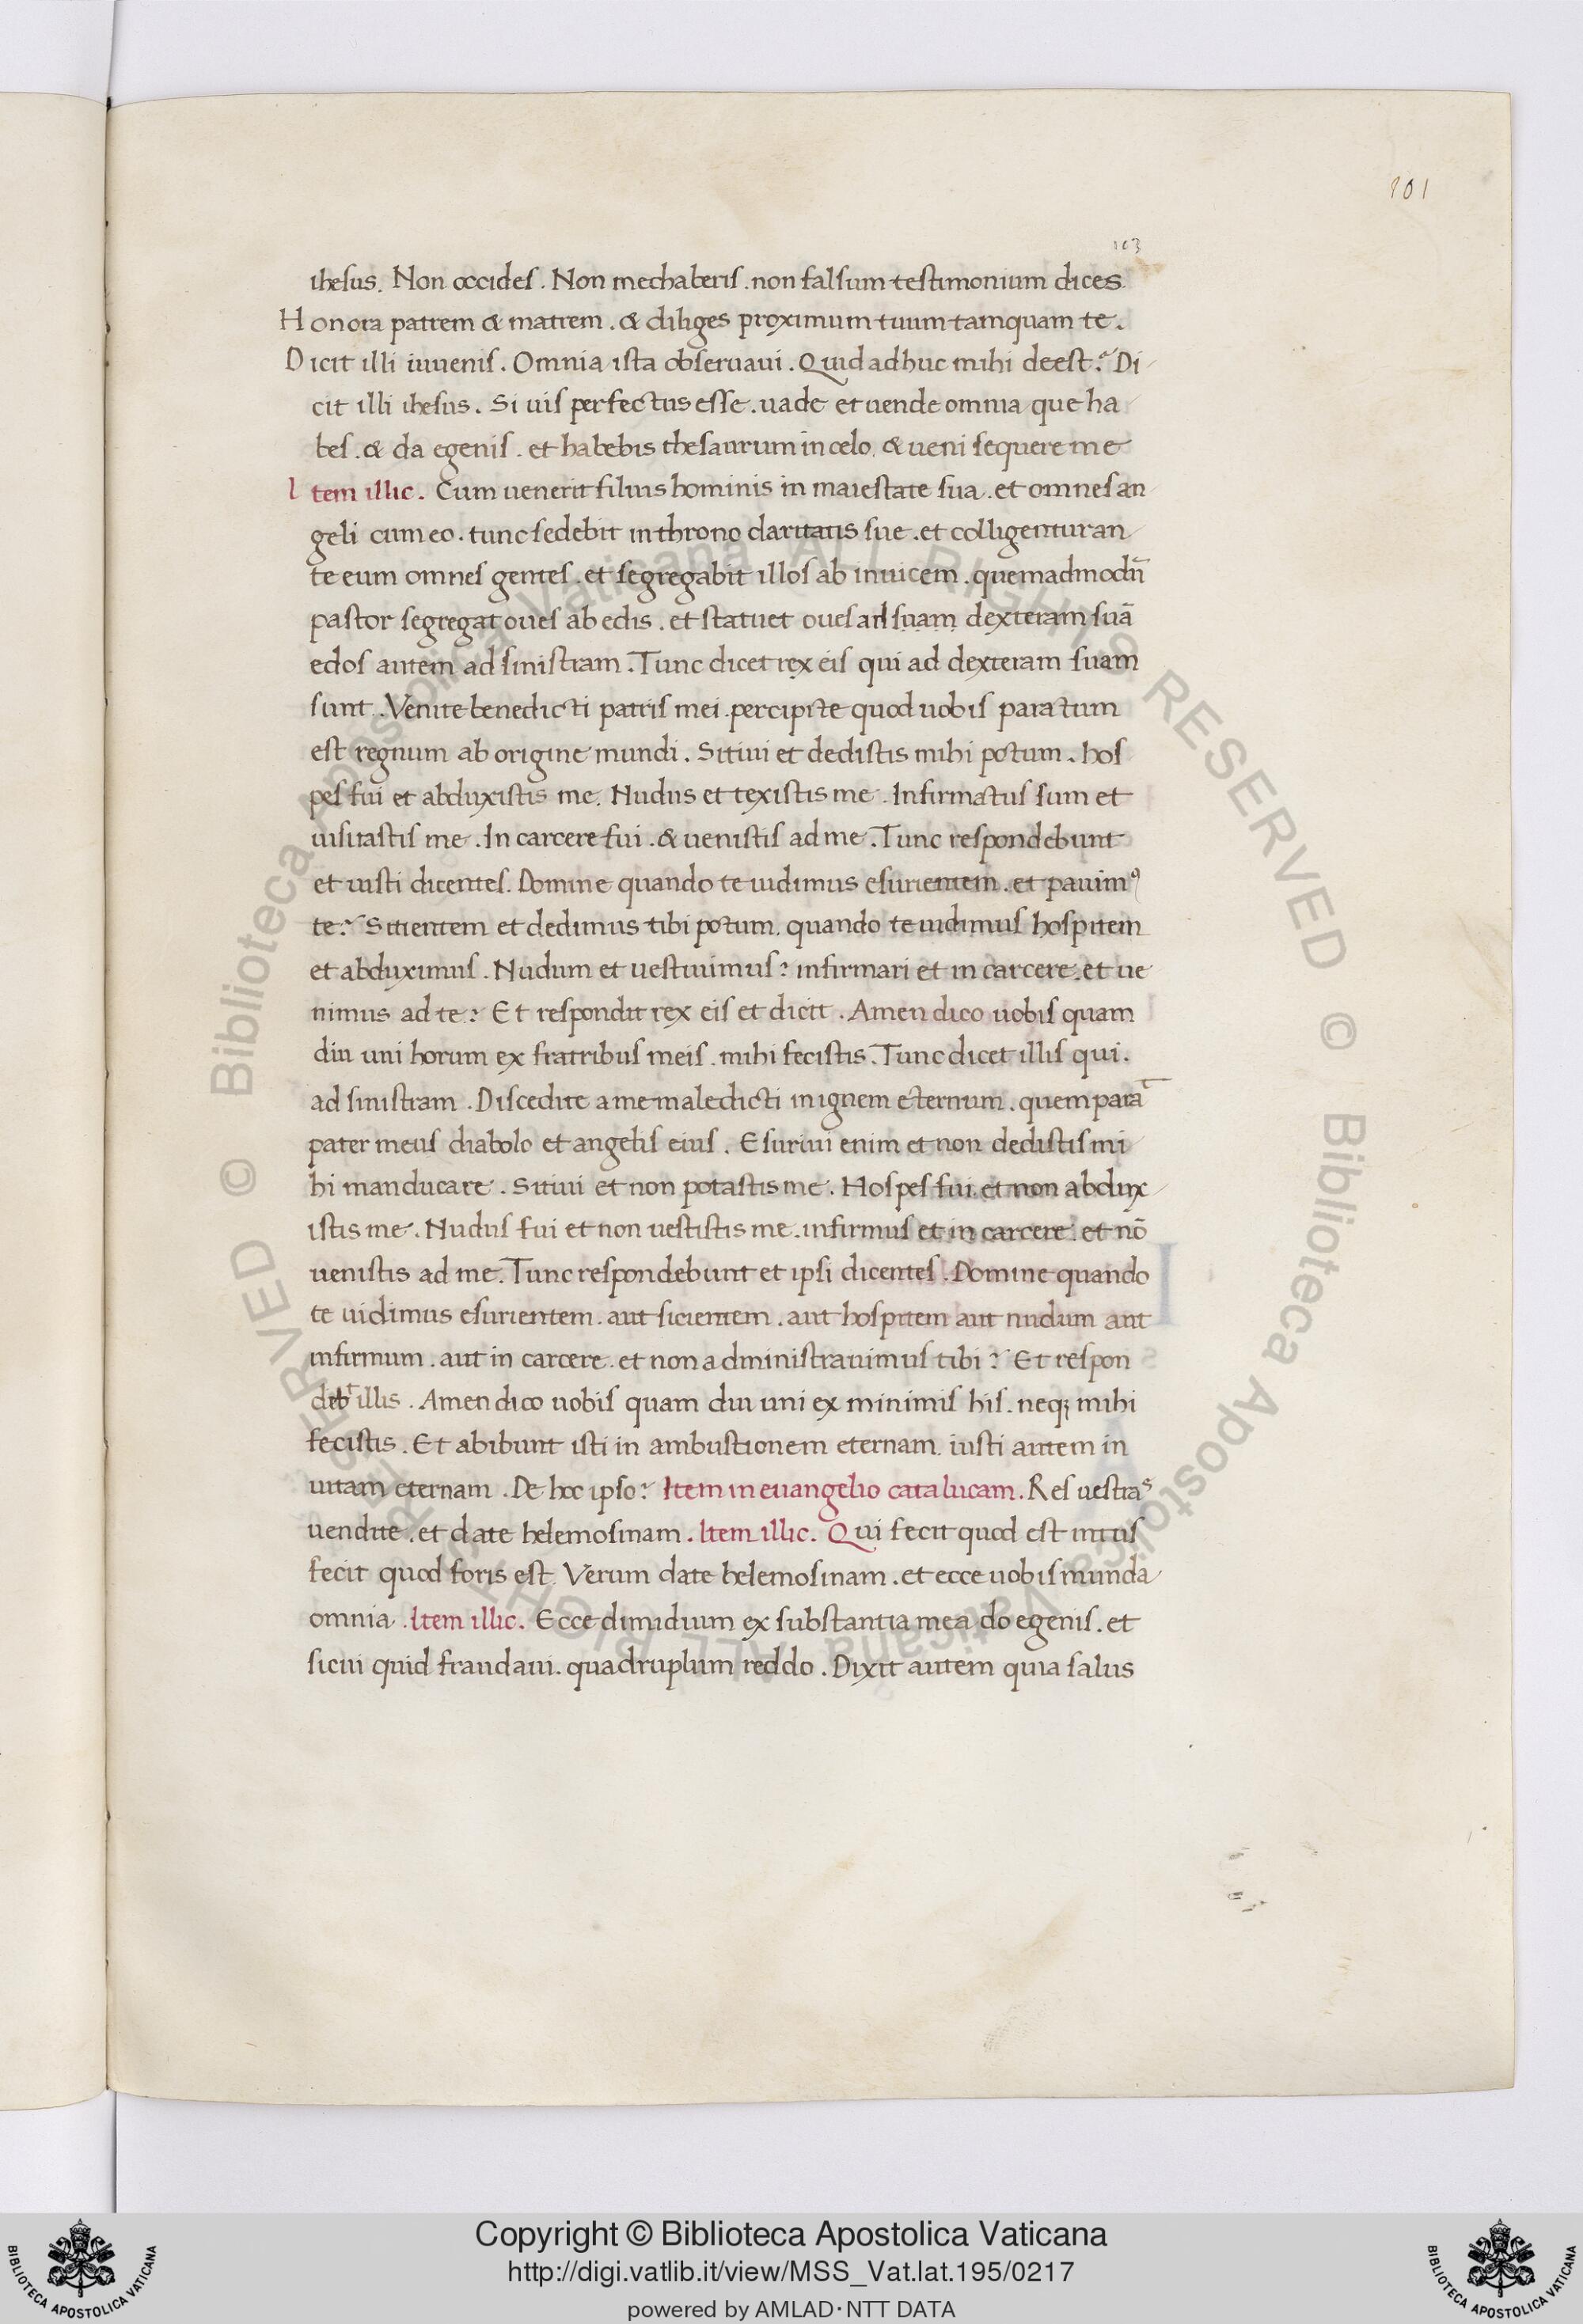 101
103
ihesus. Non occides. Non mechaberis. non falsum testimonium dices.
Honora patrem & matrem. & diliges proximum tuum tamquam te.
Dicit illi iuvenis. Omnia ista observaui. Quid adhuc mihi deest? Di
cit illi ihesus. Si uis perfectus esse. uade et uende omnia que ha
bes. & da egenis. et habebis thesaurum in celo. & ueni sequere me
Item illic. Cum uenerit filius hominis in maiestate sua. et omnes an
geli cum eo. tunc sedebit in throno claritatis sue. et colligentur an
te eum omnes gentes. et segregabit illos ab inuicem. quemadmodū
pastor segregat oues ab edis. et statuet oues ad suam dexteram suā
edos autem ad sinistram. Tunc dicet rex eis qui ad dexteram suam
sunt. Venite benedicti patris mei. percipite quod uobis paratum
est regnum ab origine mundi. Sitiui et dedistis mihi potum. hos
pes fui et abduxistis me. Nudus et texistis me. Infirmatus sum et
uisitastis me. In carcere fui. & uenistis ad me. Tunc respondebunt
et iusti dicentes. Domine quando te uidimus esurientem. et pauimꝰ
te? Sitientem et dedimus tibi potum. quando te uidimus hospitem
et abduximus. Nudum et uestiuimus? infirmari et in carcere. et ue
nimus ad te? Et respondit rex eis et dicit. Amen dico uobis quam
diu uni horum ex fratribus meis. mihi fecistis. Tunc dicet illis qui.
ad sinistram. Discedite a me maledicti in ignem eternum. quem para͞
pater meus diabolo et angelis eius. Esuriui enim et non dedistis mi
hi manducare. Sitiui et non potastis me. Hospes fui et non abdux
istis me. Nudus fui et non uestistis me. infirmus et in carcere. et nō
uenistis ad me. Tunc respondebunt et ipsi dicentes. Domine quando
te uidimus esurientem. aut sicientem. aut hospitem aut nudum aut
infirmum. aut in carcere. et non administrauimus tibi? Et respon
illis. Amen dico uobis quam diu uni ex minimis his. neqꝫ mihi
fecistis. Et abibunt isti in ambustionem eternam. iusti autem in
uitam eternam. De hoc ipso? Item in euangelio cata lucam. Res uestras
uendite. et date helemosinam. Item illic. Qui fecit quod est intus
fecit quod foris est. Verum date helemosinam. et ecce uobis munda
omnia. Item illic. Ecce dimidium ex substantia mea do egenis. et
sicui quid fraudaui. quadruplum reddo. Dixit autem quia salus
Copyright © Biblioteca Apostolica Vaticana
http://digi.vatlib.it/view/MSS_Vat.lat.195/0217
powered by AMLAD·NTT DATA
BIBLIOTECA APOSTOLICA VATICANA
BIBLIOTECA APOSTOLICA VATICANA
© Biblioteca Apostolica Vaticana ALL RIGHTS RESERVED
© Biblioteca Apostolica Vaticana ALL RIGHTS RESERVED